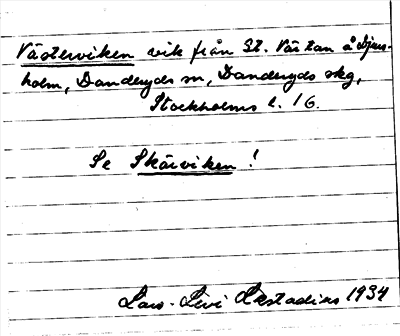 Västerviken vik från St. Värtan å Djurs-
holm, Danderyds sn, Danderyds skg,
Stockholms l. 1G.
Se Skärviken!
Lars-Levi Læstadius 1934